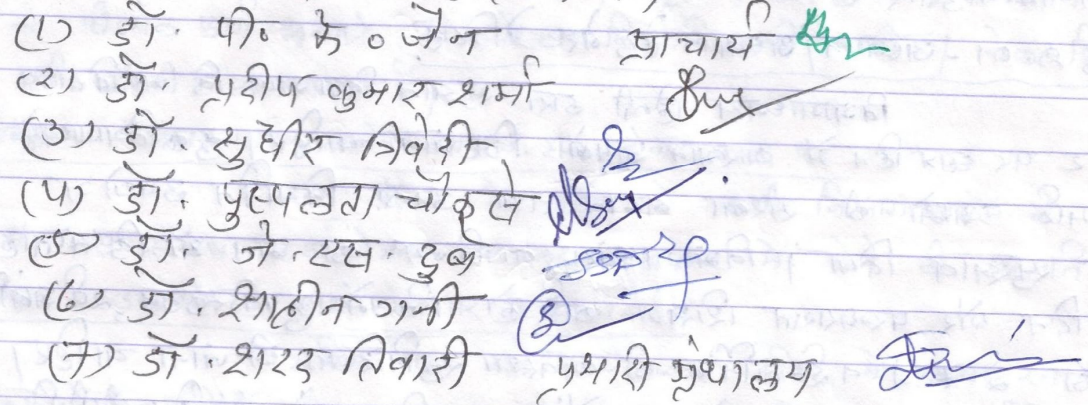 (1) डॉ. पी० के० जैन प्राचार्य
(2) डॉ. प्रदीप कुमार शर्मा
(3) डॉ सुधीर त्रिवेदी
(4) डॉ. पुष्पलता चौकसे
(5) डॉ. जे. एस. दुबे
(6) डॉ. शाहीन गनी
(7) डॉ शरद तिवारी प्रभारी ग्रंथालय